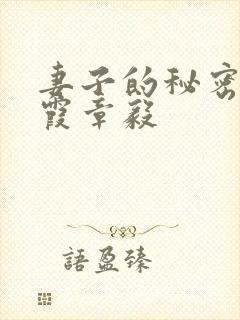 妻子的秘密
霞章毅
語盈臻